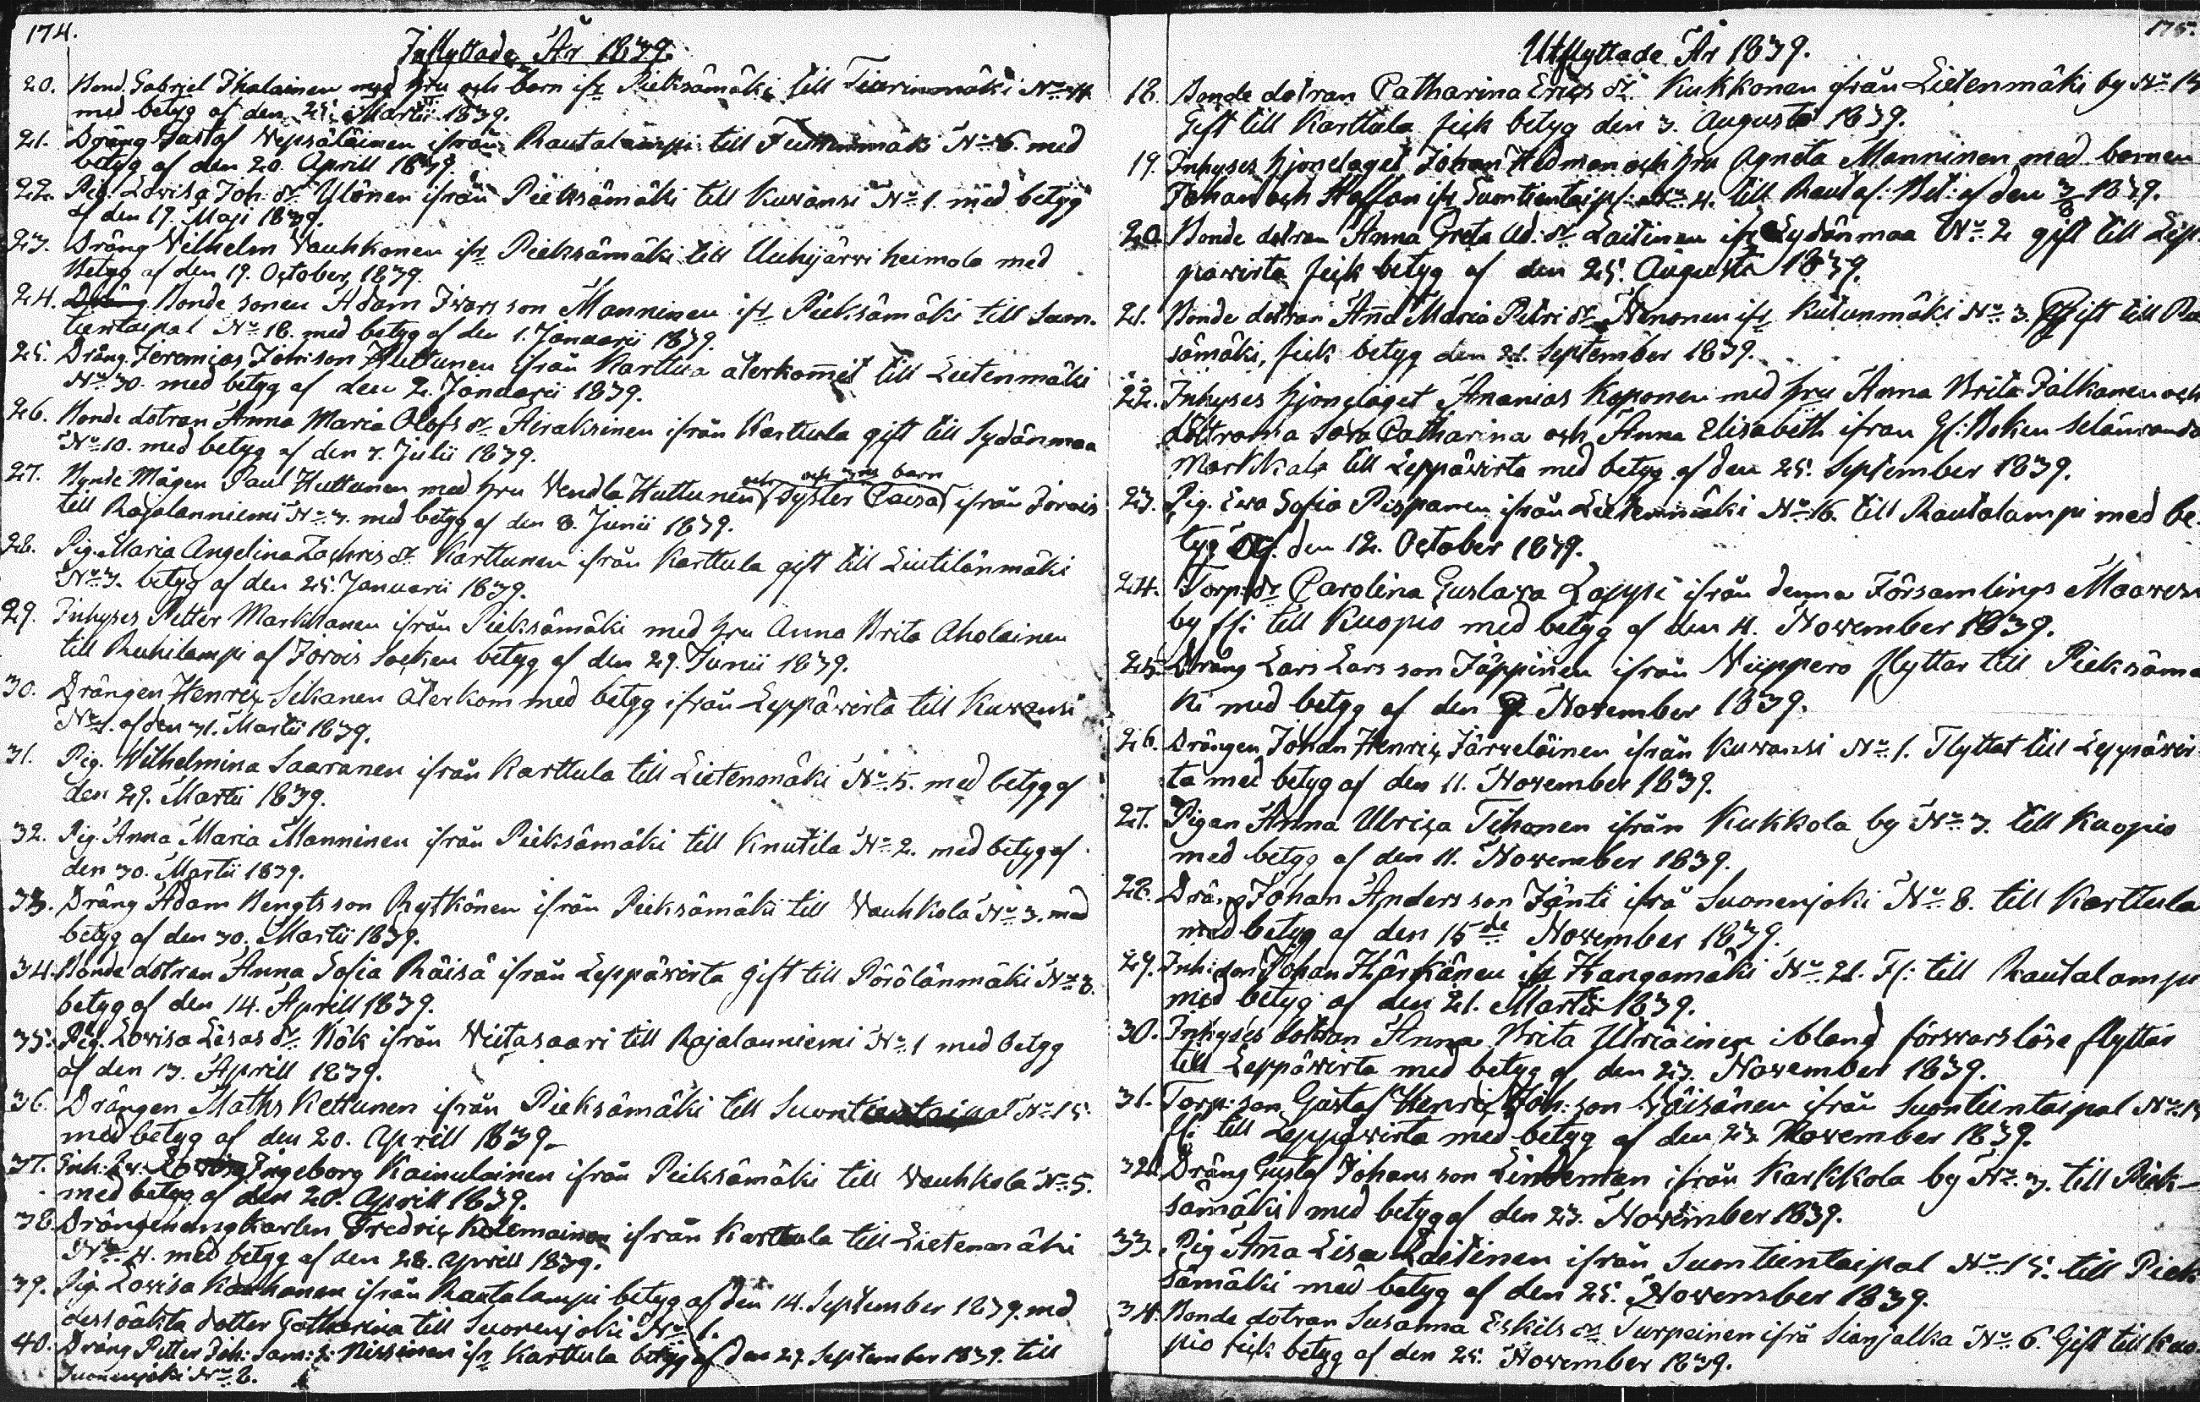 174.
Inflyttade År 1839.
20. Bond. Gabriel Ikalainen med hru och barn ifr Pieksämäki till Tiarinmäki No 4
med betyg af den 25. Martii 1839.
21. Dräng Gustaf Wepsäläinen ifrån Rautalampi till No 6. med
betyg af den 20. Aprill 1839.
22. Pig. Lovisa Joh: dr Ulonen ifrån Pieksämäki till Kuvansi No 1. med betyg
af den 19. Maji 1839.
23. Dräng Vilhelm Vauhkonen ifr Pieksämäki till heimola med
Betyg af den 19. October 1839.
24. Bonde sonen Adam Ivars son Manninen ifr Pieksämäki till Suon-
tientaipal No 16. med betyg af den 1. Januarii 1839.
25. Dräng Jeremias Johnson Huttunen ifrån Karttula återkom̅et till Lietenmäki
No 30. med betyg af den 2. Januarii 1839.
26. Bonde dotran Anna Maria Olofs dr Airaksinen ifrån Karttula gift till Sydänmaa
No 10. med betyg af den 7. Julii 1839.
27. Mågen Paul Huttunen med hru Vendla Huttunen och Syster Caisa och barn ifrån Jorois
till Rajalanniemi No 3. med betyg af den 8. Junii 1839.
28. Pig. Maria Angelina Zachris dr Karttunen ifrån Karttula gift till Liutilänmäki
No 3. betyg af den 25. Januarii 1839.
29. Inhyses Petter Markkanen ifrån Pieksämäki med hru Anna Brita Aholainen
till Ruhilampi af Jorois Socken betyg af den 29. Junii 1839.
30. Drängen Henric Sikanen återkom med betyg ifrån Leppävirta till Kuvansi
No 1. af den 31. Martii 1839.
31. Pig. Wilhelmina Saaranen ifrån Karttula till Lietenmäki No 5. med betyg af
den 29. Martii 1839.
32. Pig. Anna Maria Manninen ifrån Pieksämäki till Knutila No 2. med betyg af
den 30. Martii 1839.
33. Dräng Adam Bengts son Rytkönen ifrån Pieksämäki till Vauhkola No 3. med
betyg af den 30. Martii 1839.
34. Bonde dotran Anna Sofia Räisä ifrån Leppävirta gift till Pörölänmäki No 3.
betyg af den 14. Aprill 1839.
35. Pig. Lovisa Lisas dr Kök ifrån Viitasaari till Rajalanniemi No 1 med betyg
af den 13. Aprill 1839.
36. Drängen Maths Kettunen ifrån Pieksämäki till Suontientaipal No 15
med betyg af den 20. Aprill 1839.
37. Inh: Ingeborg Kainulainen ifrån Pieksämäki till Vauhkola No 5.
med betyg af den 20. Aprill 1839.
38. Drängen ungkarlen Fredric Kolemainen ifrån Karttula till Lietenmäki
No 4. med betyg af den 28. Aprill 1839.
39. Pig. Lovisa Kauhanen ifrån Rautalampi betyg af den 14. September 1839. med
dess oäkta dotter Catharina till Suonenjoki No 1.
40. Dräng Petter Joh: Sam: s: Nissinen ifr Karttula betyg af den 29. September 1839. till
Suonenjoki No 2.
175.
Utflyttade År 1839.
18. Bonde dotran Catharina Erics dr Kukkonen ifrån Lietenmäki by No 13
Gift till Karttula fick betyg den 3. Augusti 1839.
19. Inhyses hjonelaget Johan Hedman och hru Agneta Manninen med barnen
Johan och Staffan ifr Suontientaip: No 4. till Rautal: Bet: af den 3/8 1839.
20. Bonde dotran Anna Greta Ad: dr Laitinen ifr Sydänmaa No 2 gift till Lep-
pävirta fick betyg af den 25. Augusti 1839.
21. Bonde dotran Ana Maria Petri dr Nenonen ifr Kutunmäki No 3. Gift till
sämäki, fick betyg den 21. September 1839.
22. Inhyses hjonelaget Ananias Koponen med hru Anna Brita Pälkanen och
döttrarna Sara Catharina och Anna Elisabeth ifrån
till Leppävirta med betyg af den 25. September 1839.
23. Pig. Eva Sofia Rispanen ifrån Lietenmäki No 16. till Rautalampi med be-
tyg af den 12. October 1839.
24. Torp: dr Carolina Gustava Lappi ifrån denna Församlings
by fl: till Kuopio med betyg af den 4. November 1839.
25. Dräng Lars Lars son Jäppinen ifrån Viippero flyttar till Pieksämä
ki med betyg af den 9. November 1839.
26. Drängen Johan Henric Järveläinen ifrån Kuvansi No 1. Flyttat till Leppävir-
ta med betyg af den 11. November 1839.
27. Pigan Anna Ulrica Tihonen ifrån Kukkola by No 3. till Kuopio
med betyg af den 11. November 1839.
28. Dräng Johan Anders son Jänti ifrå Suonenjoki No 8. till Karttula
med betyg af den 15de November 1839.
29. Inh: son Johan Kärkänen ifr Kangamäki No 21. Fl: till Rautalampi
med betyg af den 21. Martii 1839.
30. Inhyses dotran Anna Brita ibland försvarslöse flyttar
till Leppävirta med betyg af den 23. November 1839.
31. Torp: son Gustaf Henric Joh: son Väisänen ifrån Suontientaipal No 14
fl: till Leppävirta med betyg af den 23 November 1839.
32. Dräng Gustaf Johans son Lindeman ifrån Karkkola by No 3. till Piek-
sämäki med betyg af den 23. November 1839.
33. Pig Ana Lisa Laitinen ifrån Suontientaipal No 15. till Piek
sämäki med betyg af den 25. November 1839.
34. Bonde dotran Susanna Eskils dr Turpeinen ifrå Sianjalka No 6. Gift till Kuo-
pio fick betyg af den 25. November 1839.